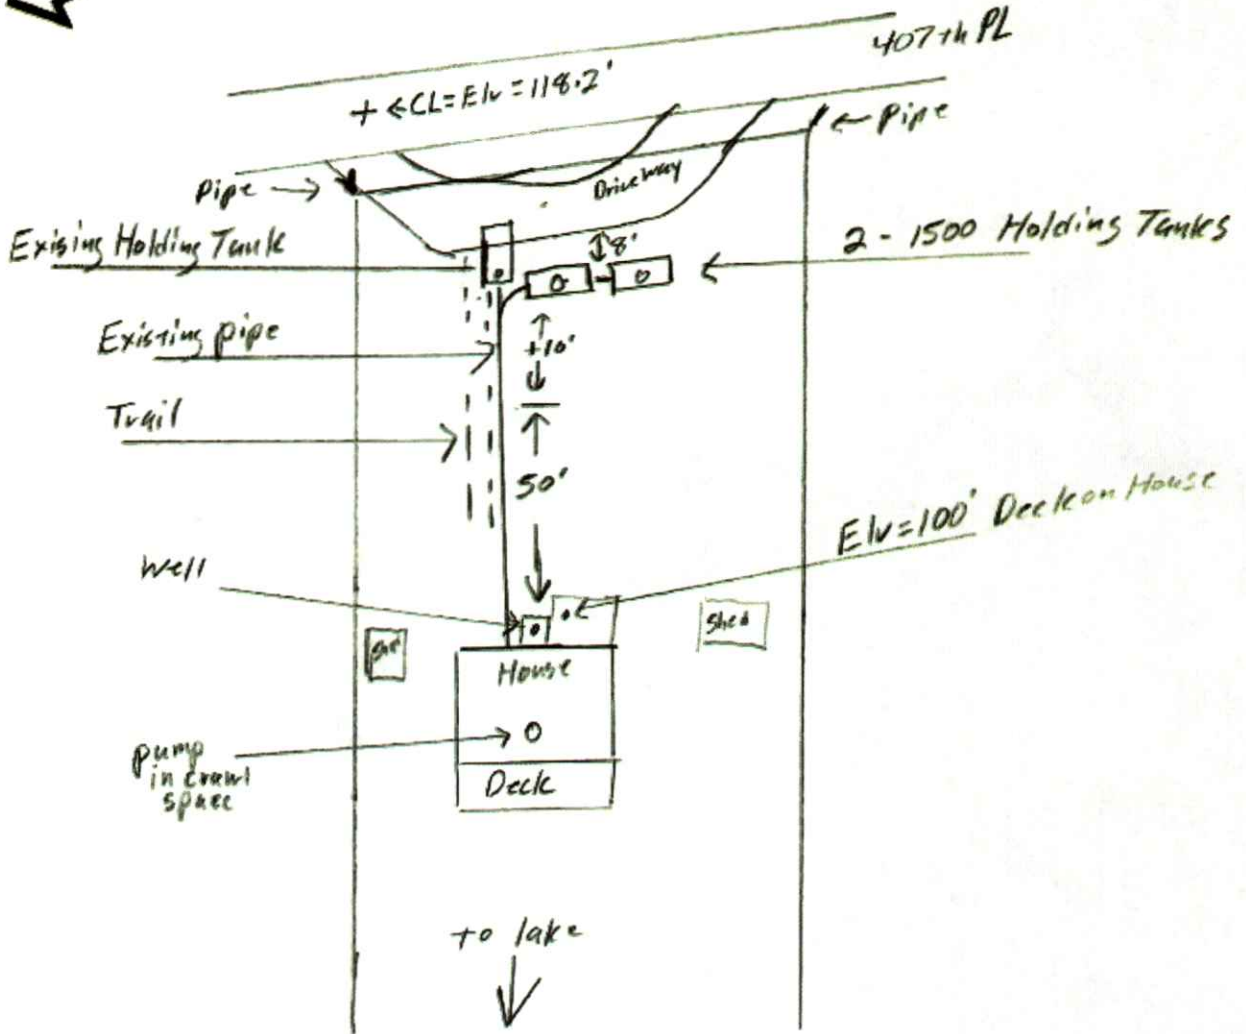 407th PL
+ ←CL=Elv=118.2'
← Pipe
Pipe →
Driveway
Exising Holding Tank
8'
2 - 1500 Holding Tanks
Existing pipe
+10'
Trail
50'
Elv=100' Deck on House
Well
Shed
House
pump
in crawl
space
Deck
to lake